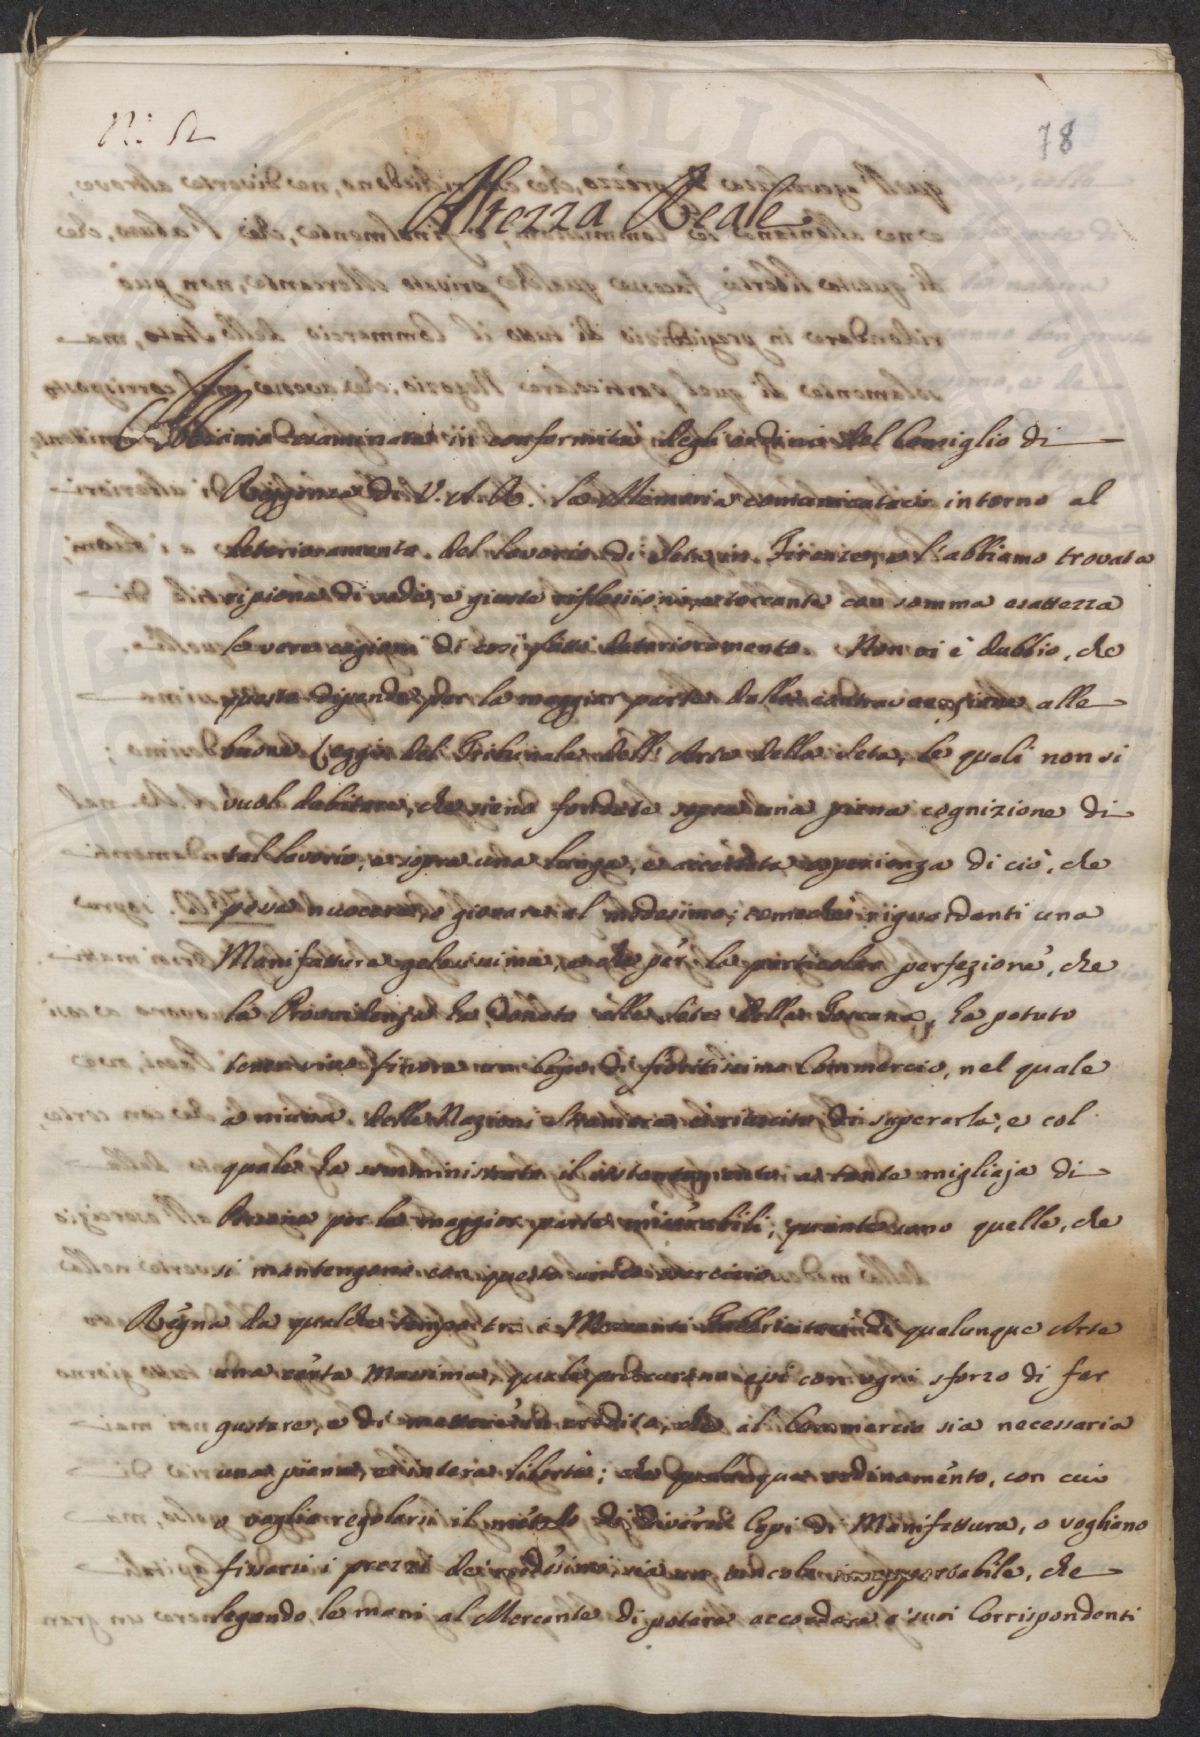 N.° 52
78
Altezza Reale
Abbiamo esaminata in conformità degli ordini del Consiglio di
Reggenza di V. A. R. la Memoria comunicataci intorno al
deterioramento del lavorio di seta in Firenze, e l'abbiamo trovata
ripiena di vedute, e giuste riflessioni, e toccante con somma esattezza
le vere cagioni di così fatto deterioramento. Non vi è dubbio, che
questo dipende per la maggior parte dalla contravenzione alle
buone Leggi del Tribunale dell'Arte della seta, le quali non si
vuol dubitare, che sieno fondate sopra una piena cognizione di
tal lavorio, e sopra una lunga, e accertata esperienza di ciò, che
possa nuocere, o giovare al medesimo; come riguardanti una
Manifattura gelosissima, e che per la particolar perfezione, che
la Provvidenza ha donato alle sete della Toscana, ha potuto
tener vivo finora un Capo di fioritissimo Commercio, nel quale
a niuna delle Nazioni straniere è riuscito di superarla, e col
quale ha somministrato il sostentamento a tante migliaja di
Persone per la maggior parte miserabili, quante sono quelle, che
si mantengono con questo unico esercizio.
Regna da qualche tempo tra i Mercanti Fabbricatori di qualunque Arte
una certa Massima, quale procurano essi con ogni sforzo di far
gustare, e di mettere in credito, che al Commercio sia necessaria
una piena, e intera libertà; che qualunque ordinamento, con cui
o voglia regolarsi il metodo di diversi Capi di Manifattura, o vogliano
fissarsi i prezzi dei medesimi, sia un vincolo insopportabile, che
legando le mani al Mercante di potere accordare a' suoi Corrispondenti